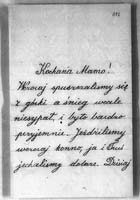 Kochana Mamo!
Wczoraj spuszczaliśmy się
z górki a śnieg wcale
niesypał i było bardzo
przyjemnie. Jeździliśmy
wczoraj konno, ja i
jechaliśmy dobrze. Dzisiaj